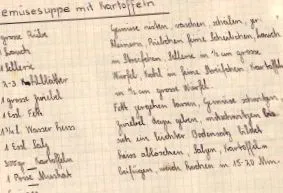 emüsesuppe mit Kartoffeln
grosse Rübe
Lauch
1 Sellerie
2-3 Kohlblätter
1 grosse Zwiebel
1 Essl. Fett
1¾ l. Wasser heiss
1 Essl. Salz
300gr Kartoffeln
1 Prise Muskat
Gemüse rüsten waschen, schälen,
Rübchen feine Scheibchen, Lauch
in Streifchen, Sellerie in ½ cm grosse
Würfel, Kohl in feine Streifchen Kartoffeln
in ½ cm grosse Würfel.
Fett zergehen lassen, Gemüse
Zwiebel dazu geben, mitdämpfen bis
sich ein leichter Bodensatz bildet
heiss ablöschen, Salzen, Kartoffeln
beifügen, weich kochen in 15-20 Min.